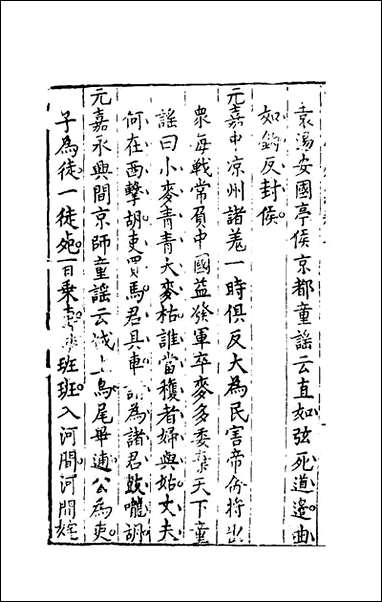 袁湯安國亭侯京都童謡云直如弦死道邉曲
如鈎反封侯
元嘉中凉州諸羗一時俱反大為民害帝命将出
衆毎戰常負中國益發軍卒麥多委棄天下童
謡曰小麥青青大麥枯誰當穫者婦與姑丈夫
何在西擊胡吏買馬君具車請為諸君鼓嚨胡
元嘉永興間京師童謡云城上烏尾畢逋公為吏
子為徒一徒死百乗車班班入河間河間姹